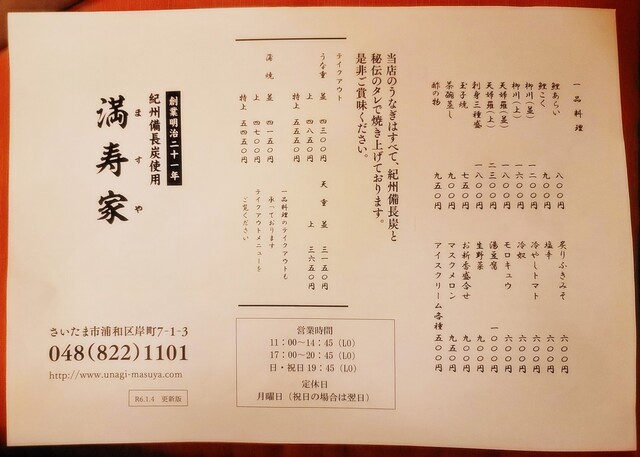 一品料理
鯉あらい 八〇〇円
鯉こく 九〇〇円
柳川(並) 一一〇〇円
柳川(上) 一六〇〇円
天婦羅(並) 一八〇〇円
天婦羅(上) 二三〇〇円
刺身三種盛 一八〇〇円
玉子焼 七五〇円
茶碗蒸し 九〇〇円
酢の物 九五〇円
炙りふきみそ 六〇〇円
塩辛 六〇〇円
冷やしトマト 六〇〇円
冷奴 六〇〇円
モロキュウ 六〇〇円
湯豆腐 一〇〇〇円
生野菜 九〇〇円
お新香盛合せ 九〇〇円
マスクメロン 九五〇円
アイスクリーム各種 五〇〇円
当店のうなぎはすべて、紀州備長炭と
秘伝のタレで焼き上げております。
是非ご賞味ください。
テイクアウト
うな重 並 四三〇〇円
上 四八五〇円
特上 五五五〇円
蒲焼 並 四一五〇円
上 四七〇〇円
特上 五四五〇円
天重 並 三一五〇円
上 三六五〇円
一品料理のテイクアウトも
承っております
テイクアウトメニューを
ご覧ください
営業時間
11:00〜14:45(LO)
17:00〜20:45(LO)
日・祝日19:45(LO)
定休日
月曜日(祝日の場合は翌日)
創業明治二十一年
紀州備長炭使用
満寿家
ますや
さいたま市浦和区岸町7-1-3
048(822)1101
http://www.unagi-masuya.com
R6.1.4 更新版